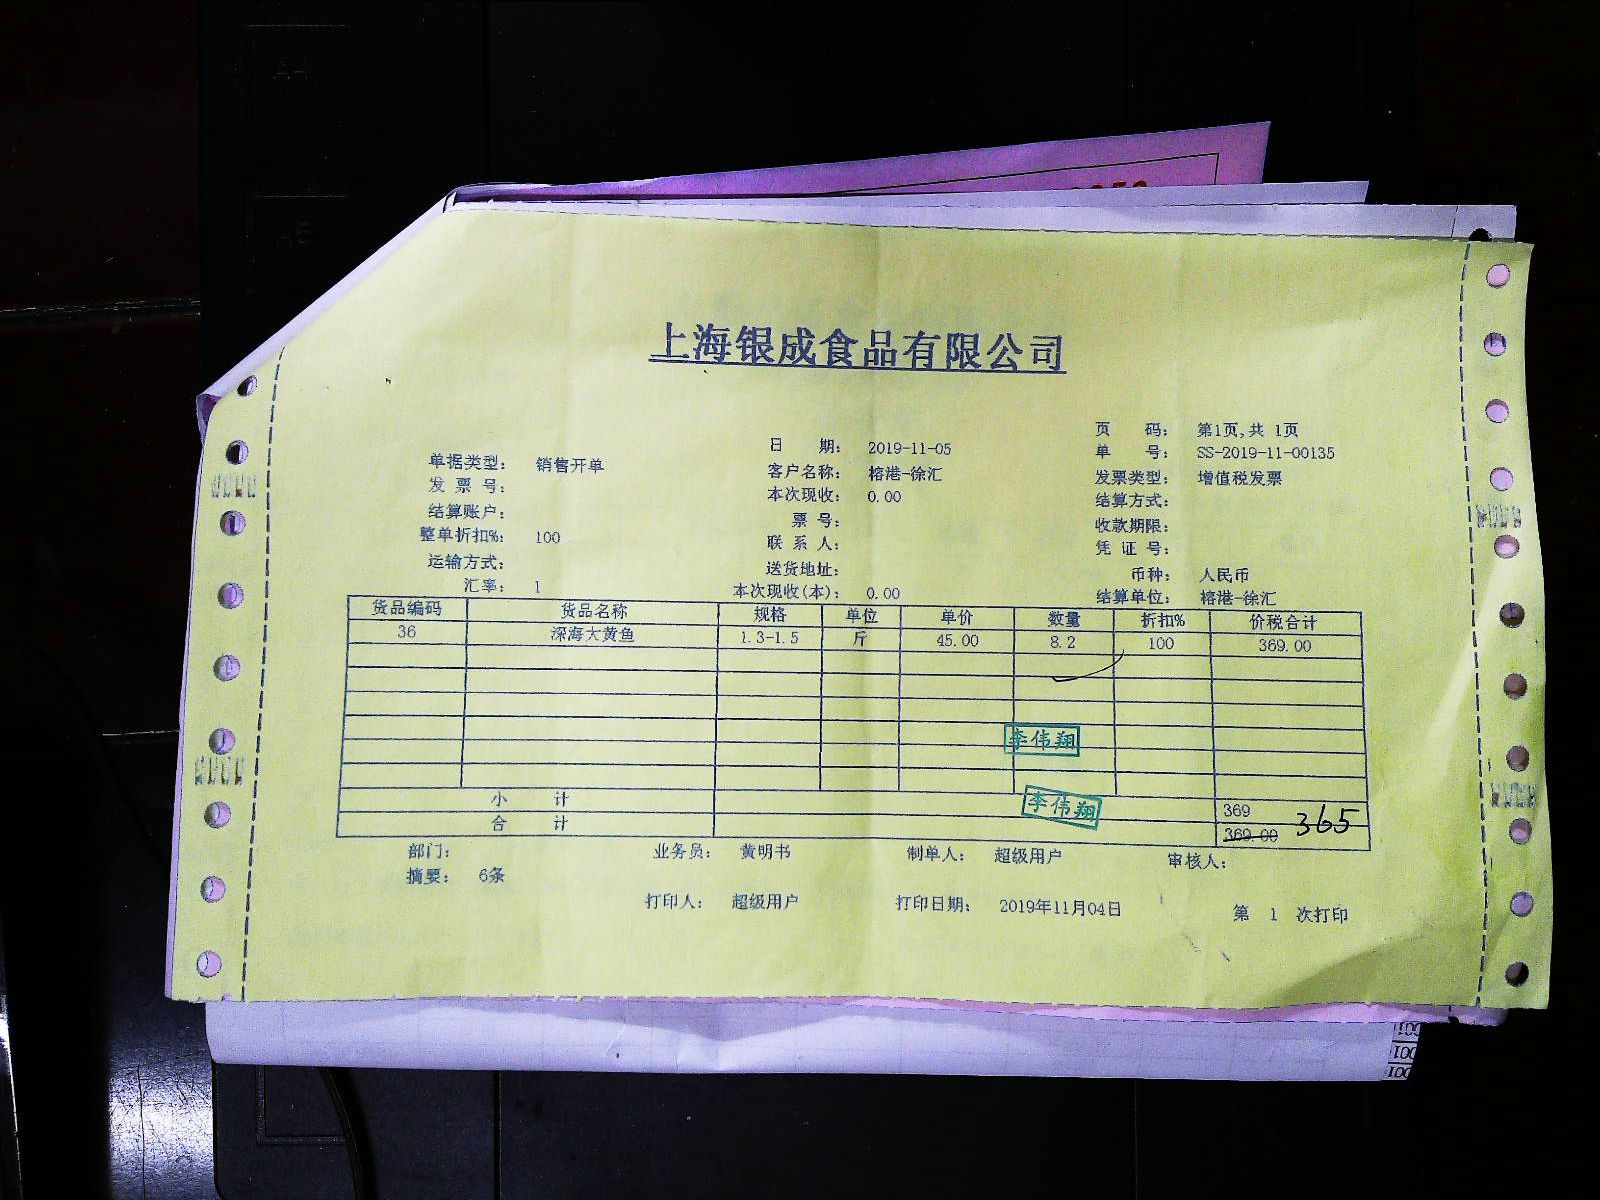 上海银成食品有限公司
页 码: 第1页,共 1页
日 期: 2019-11-05 单 号: SS-2019-11-00135
单据类型: 销售开单 客户名称: 榕港-徐汇 发票类型: 增值税发票
发 票 号: 本次现收: 0.00 结算方式:
结算账户: 票 号: 收款期限:
整单折扣%: 100 联 系 人: 凭 证 号:
运输方式: 送货地址: 币种: 人民币
汇率: 1 本次现收(本): 0.00 结算单位: 榕港-徐汇
货品编码 货品名称 规格 单位 单价 数量 折扣% 价税合计
36 深海大黄鱼 1.3-1.5 斤 45.00 8.2 100 369.00
李伟翔
小 计 369
李伟翔
合 计 369.00 365
部门: 业务员: 黄明书 制单人: 超级用户 审核人:
摘要: 6条
打印人: 超级用户 打印日期: 2019年11月04日 第 1 次打印
001
001
001